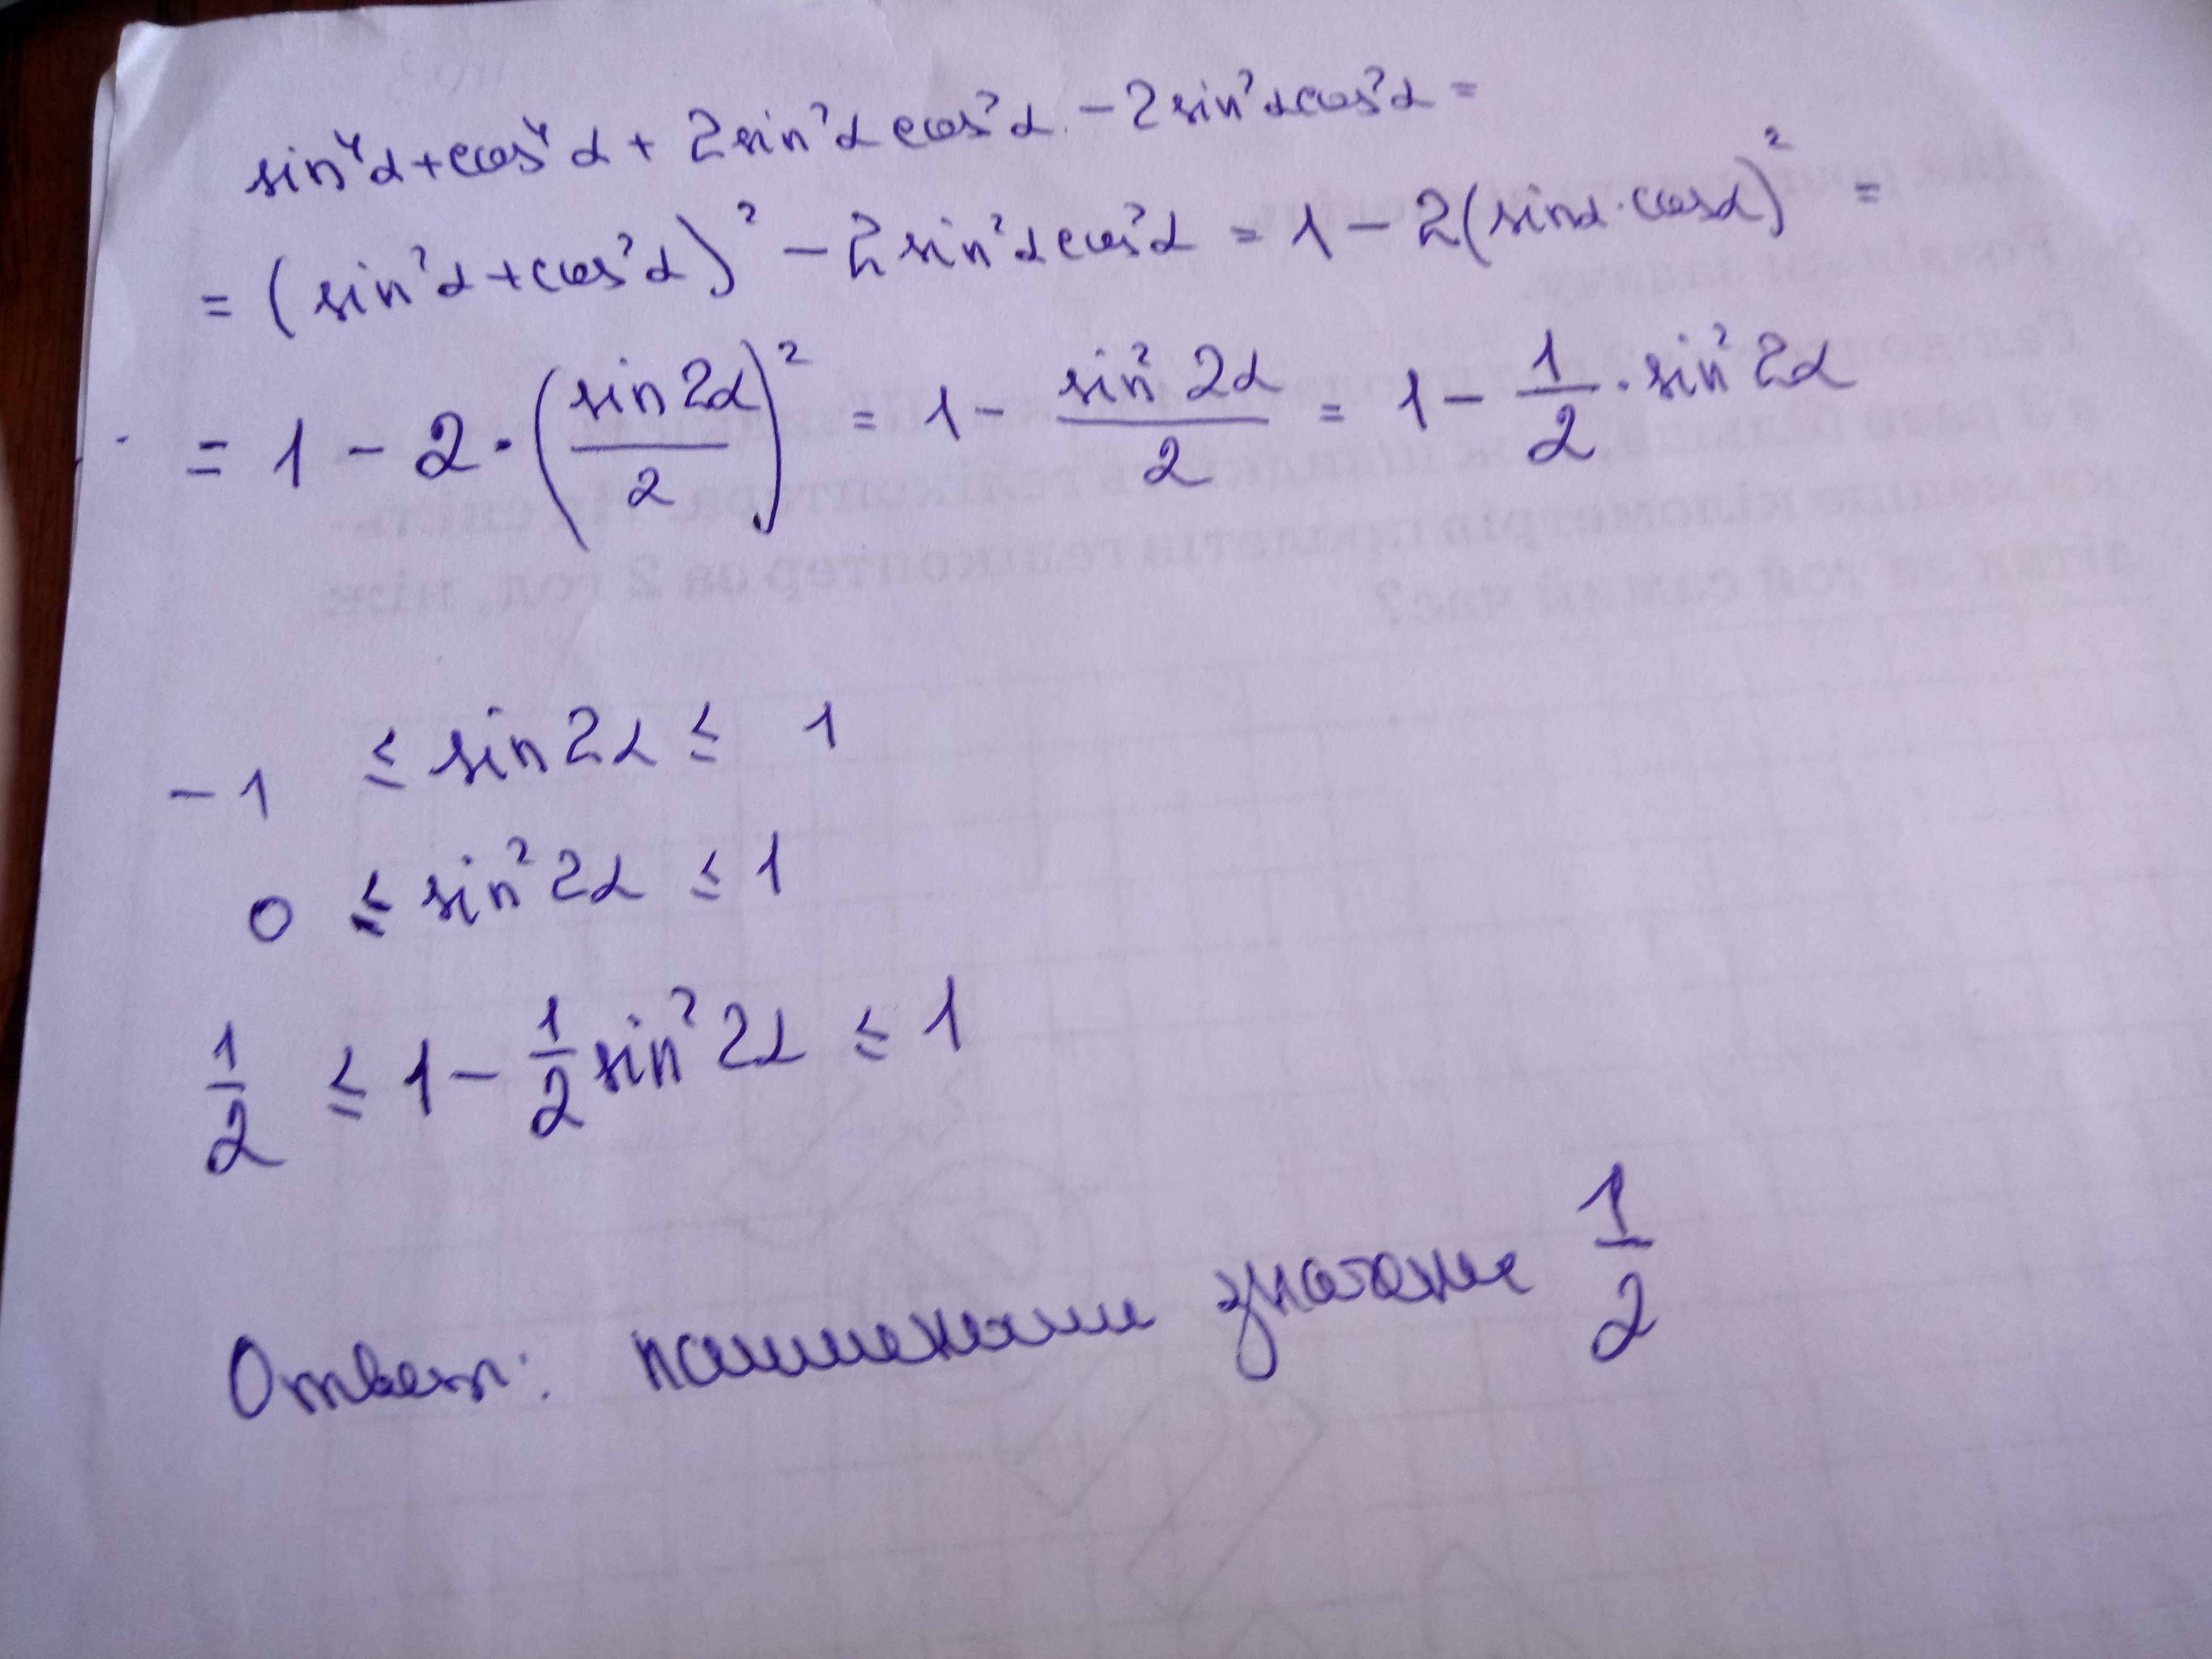 sin⁴α + cos⁴α + 2sin²α cos²α - 2sin²αcos²α =
= (sin²α + cos²α)² - 2sin²αcos²α = 1 - 2(sinα·cosα)² =
= 1 - 2·(sin2α/2)² = 1 - sin²2α/2 = 1 - 1/2·sin²2α
-1 ≤ sin2α ≤ 1
0 ≤ sin²2α ≤ 1
1/2 ≤ 1 - 1/2 sin²2α ≤ 1
Ответ: 1/2